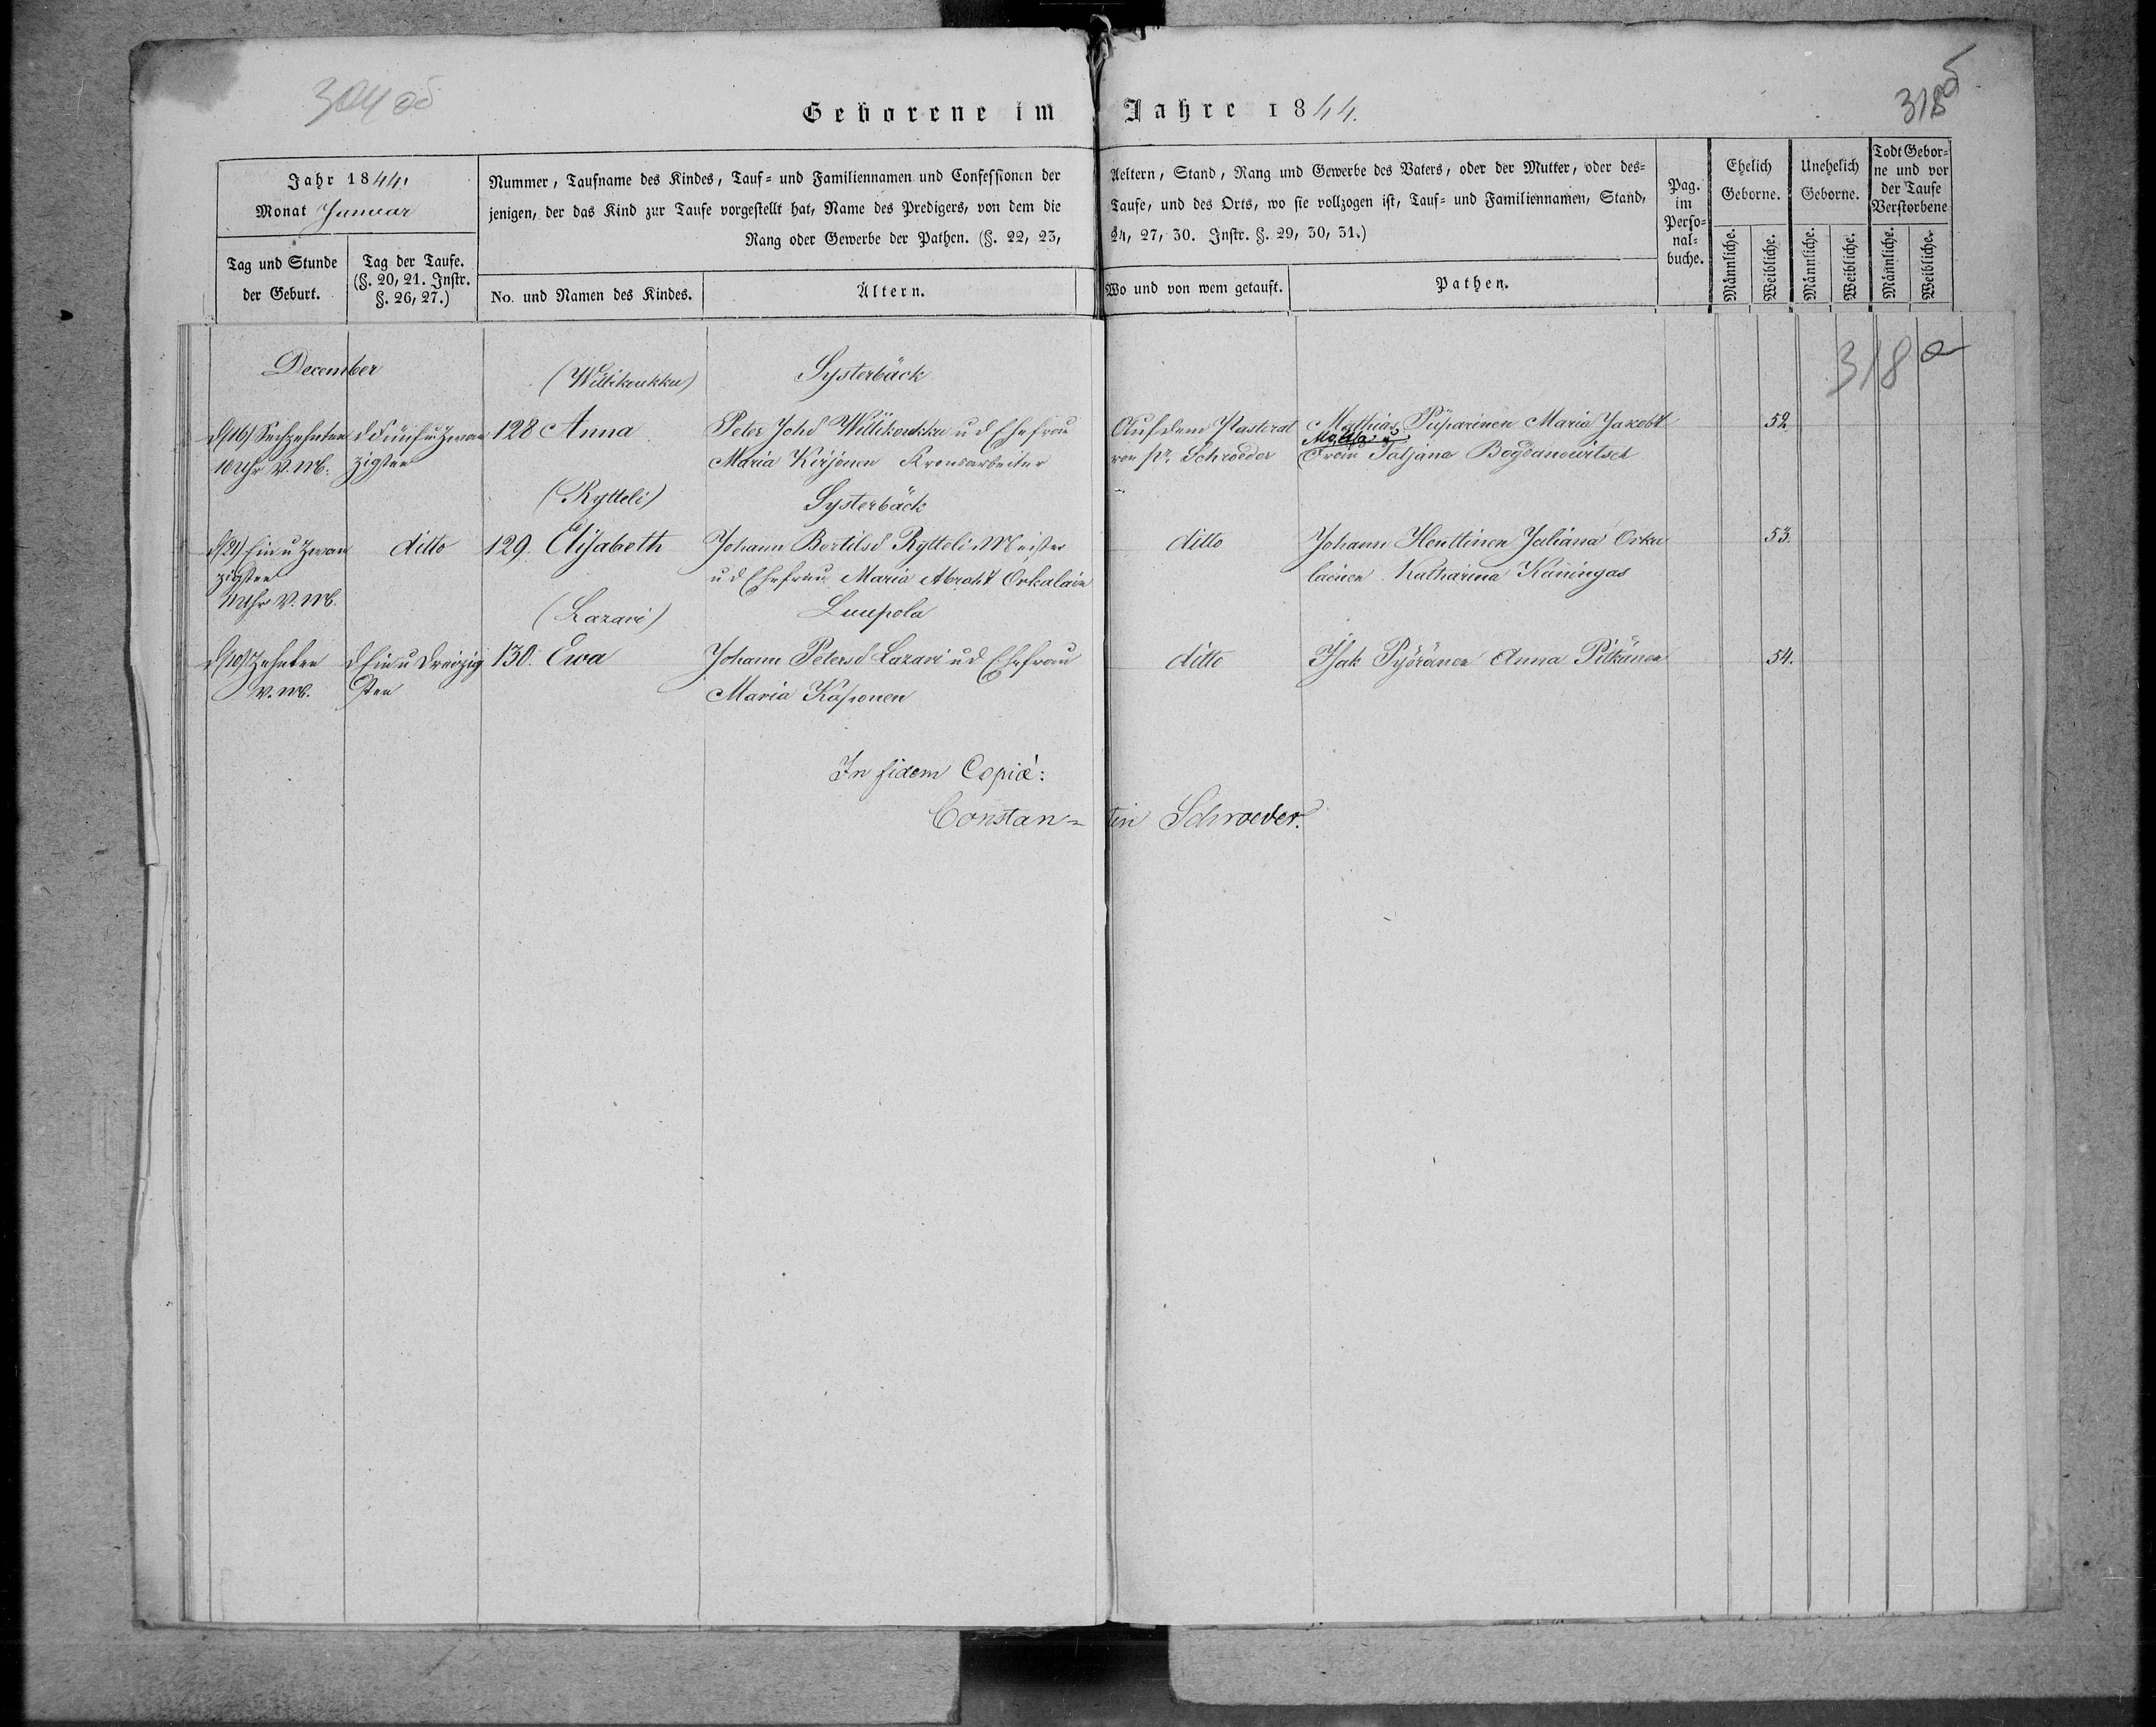 304 об
318 об
Geborene im Jahre 1844.
Jahr 1844.
Monat Januar
Tag und Stunde der Geburt.
Tag der Taufe. (§. 20, 21. Instr. §. 26, 27.)
Nummer, Taufname des Kindes, Tauf- und Familiennamen und Confessionen der Aeltern, Stand, Rang und Gewerbe des Vaters, oder der Mutter, oder des-
jenigen, der das Kind zur Taufe vorgestellt hat, Name des Predigers, von dem die Taufe, und des Orts, wo sie vollzogen ist, Tauf- und Familiennamen, Stand,
Rang oder Gewerbe der Pathen. (§. 22, 23, 24, 27, 30. Instr. §. 29, 30, 31.)
No. und Namen des Kindes.
Ältern.
Wo und von wem getauft.
Pathen.
Pag. im Perso-nal-buche.
Ehelich Geborne.
Unehelich Geborne.
Todt Gebor-ne und vor der Taufe Verstorbene
Männliche. Weibliche. Männliche. Weibliche. Männliche. Weibliche.
318 a
December (Willikoukku) Systerbäck
d. (16) Sechzehnten d Fünf u Zwan 128 Anna Peter Johd Willikoukku u d Ehefrau Auf dem Pastorat Mathias Püparinen Maria Jakobt 52.
10 Uhr V. M. zigsten Maria Kirjonen Kronsarbeiter von Pr. Schroeder Tatjana Bogdanowitsch
(Rytteli) Systerbäck
d (21) Ein u Zwan ditto 129. Elisabeth Johann Bertilsd Rytteli Meister ditto Johann Henttinen Juliana Orka 53.
zigsten u d Ehefrau Maria Abraht Orkalain lainen Katharina Käningas
11 Uhr V. M. (Lazari) Luupola
d (10) Zehnten d Ein u Dreizig 130. Ewa Johann Petersd Lazari u d Ehefrau ditto Isak Pyöränen Anna Pitkänen 54.
V. M. sten Maria Käsonen
In fidem Copiæ:
Constan= tin Schroeder.